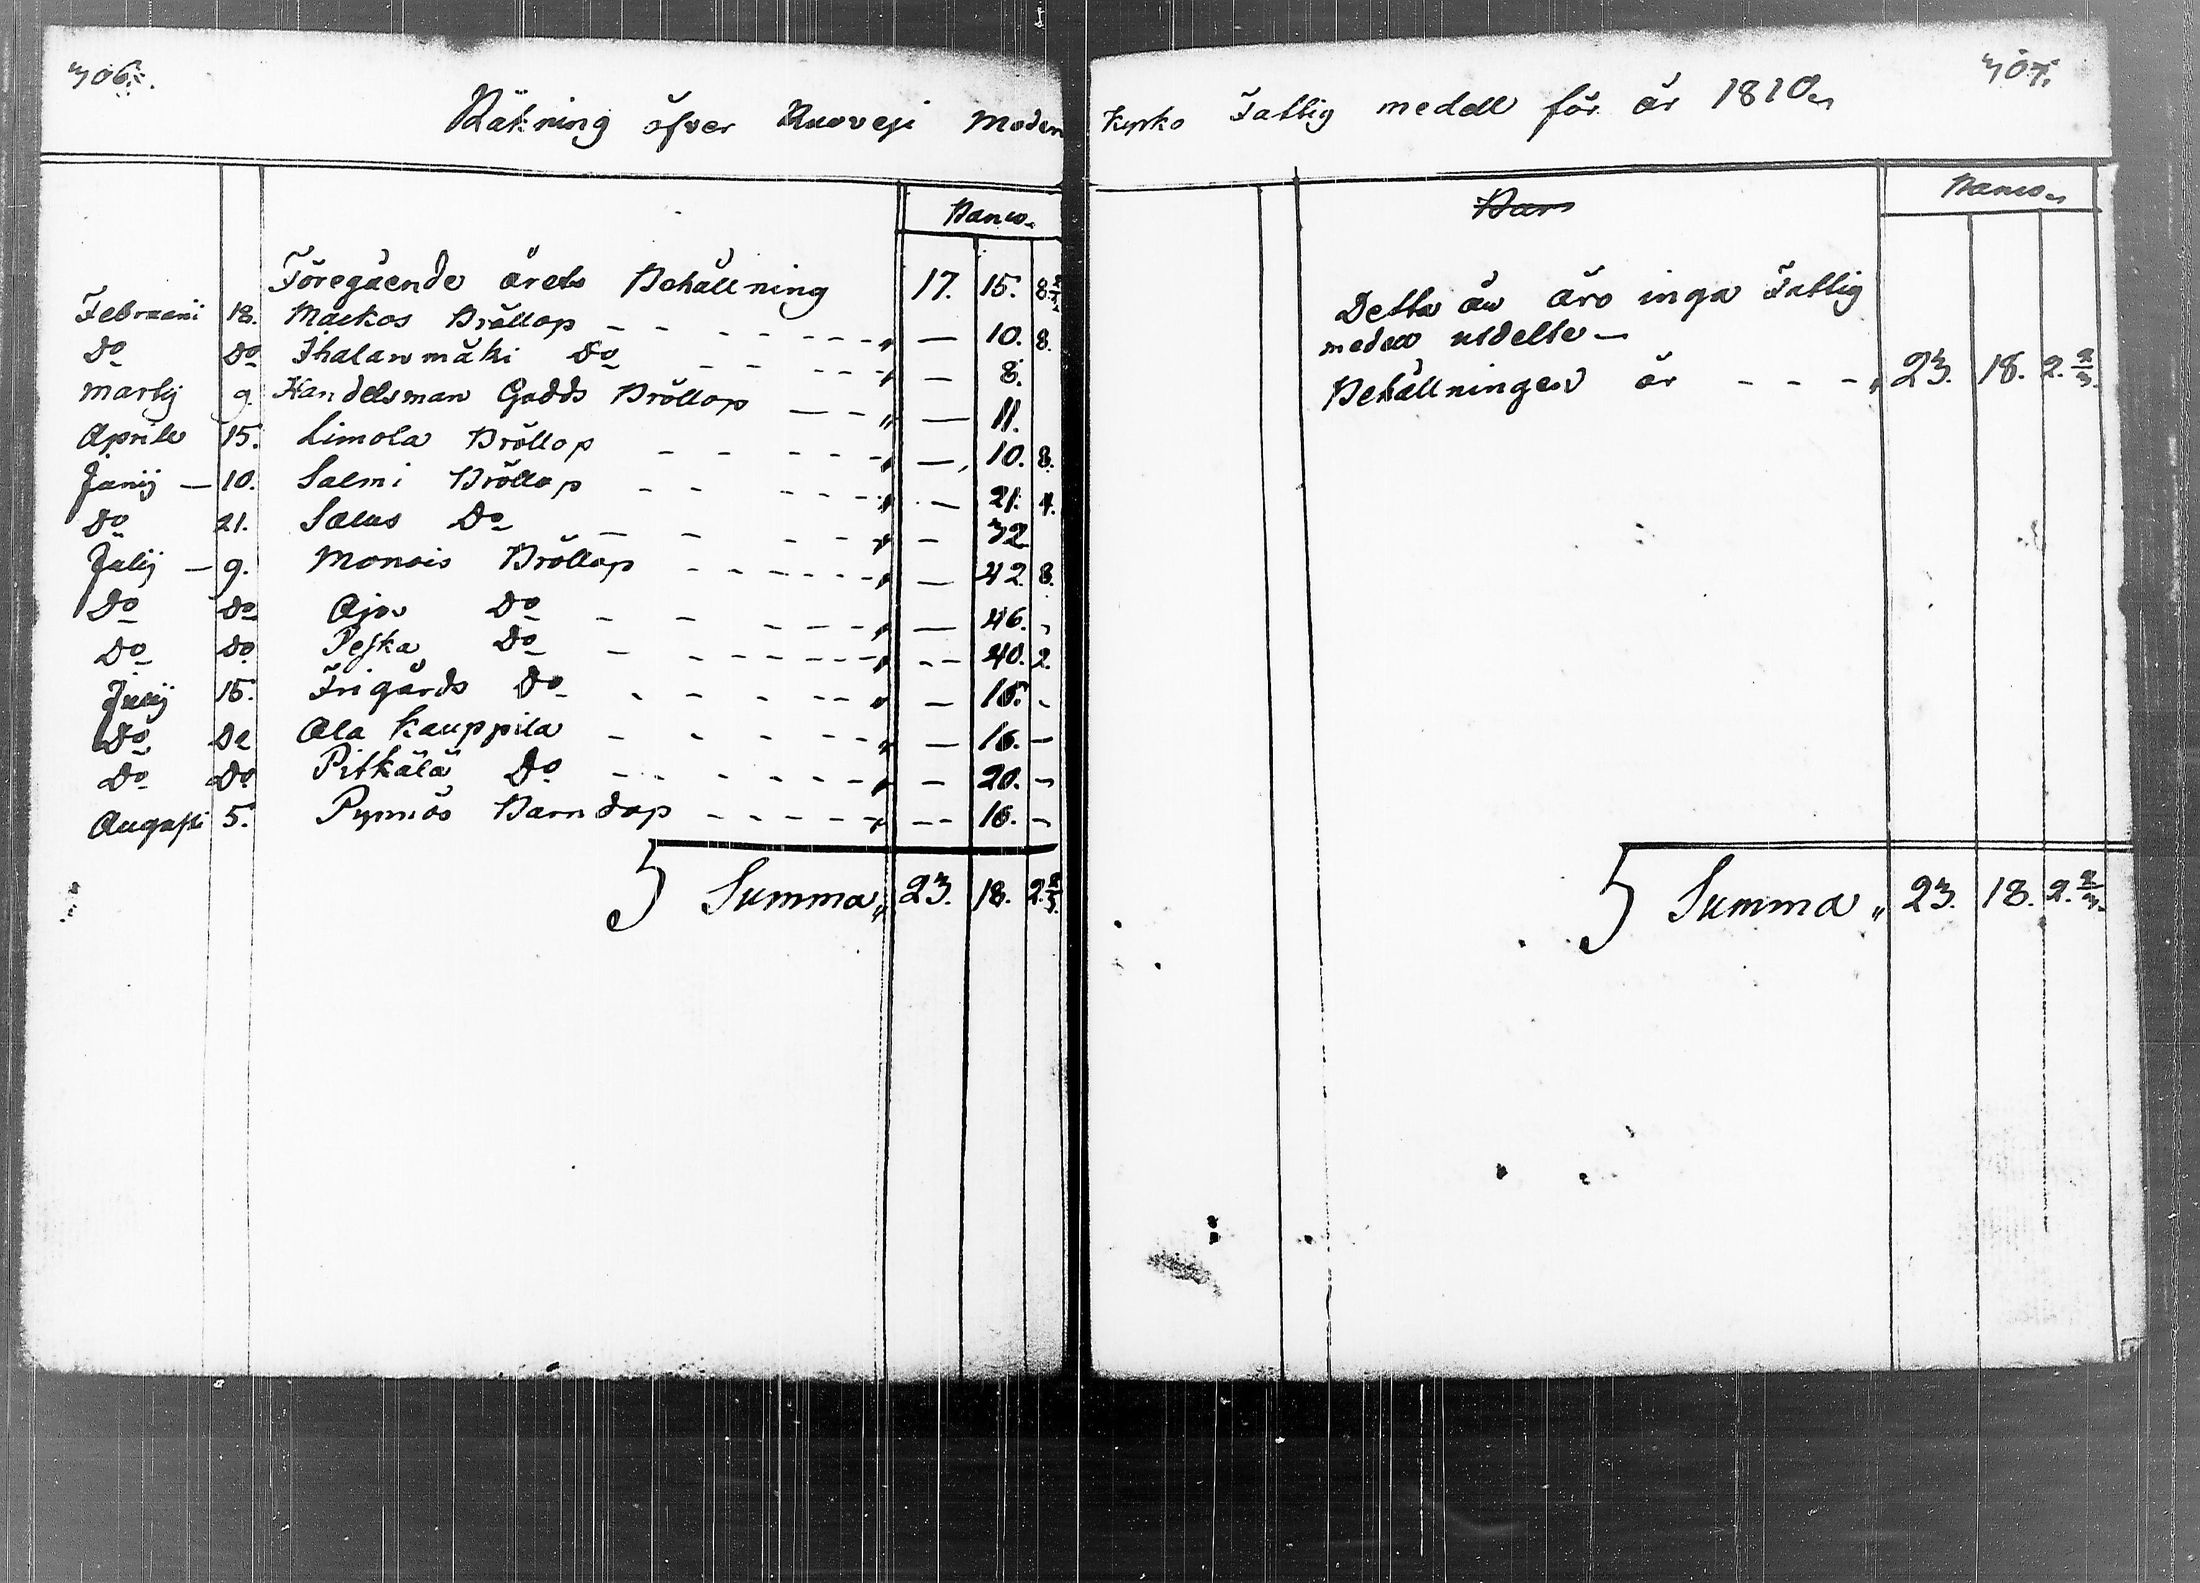 306.
Räkning öfver Ruovesi Moder
Banco.
Föregående årets Behållning 17. 15. 8 2/3
Februarii 18. Mackos Bröllop - - - - - - - " — 10. 8.
Do Do Ihalanmäki Do - - - - - " — 8.
Martij 9. Handelsman Gadds Bröllop — — - " — 11.
Aprile 15. Limola Bröllop - - - - - " — 10. 8.
Junij — 10. Salmi Bröllop - - - - - " — 21. 4.
Do 21. Salus Do — - - - - " — 32
Julij — 9. Monois Bröllop - - - - - - " — 42. 8.
Do Do Ajo Do - - - - - - " — 46. -
Do Do Peska Do - - - - - - - " — 40. 2.
Julij 15. Frigårds Do - - - - - - " — 16. -
Do Do Ala Kauppila - - - - - - " — 16. —
Do Do Pitkälä Do - - - - - - " — 20. -
Augusti 5. Pynnös Barndop - - - - - " — 16. -
Summa " 23. 18. 2 2/3.
307.
Kyrko Fattig medell för år 1810
Banco
Detta år äro inga Fattig
medell utdelte —
Behållningen är - - - " 23. 18. 2. 2/3.
Summa " 23. 18. 2. 2/3.